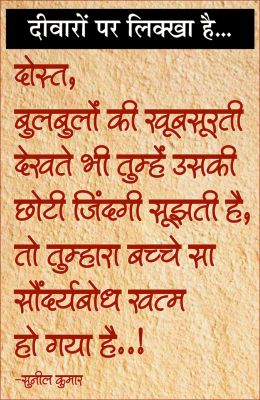 दीवारों पर लिक्खा है...
दोस्त,
बुलबुलों की खूबसूरती
देखते भी तुम्हें उसकी
छोटी जिंदगी सूझती है,
तो तुम्हारा बच्चे सा
सौंदर्यबोध खत्म
हो गया है..!
-सुनील कुमार